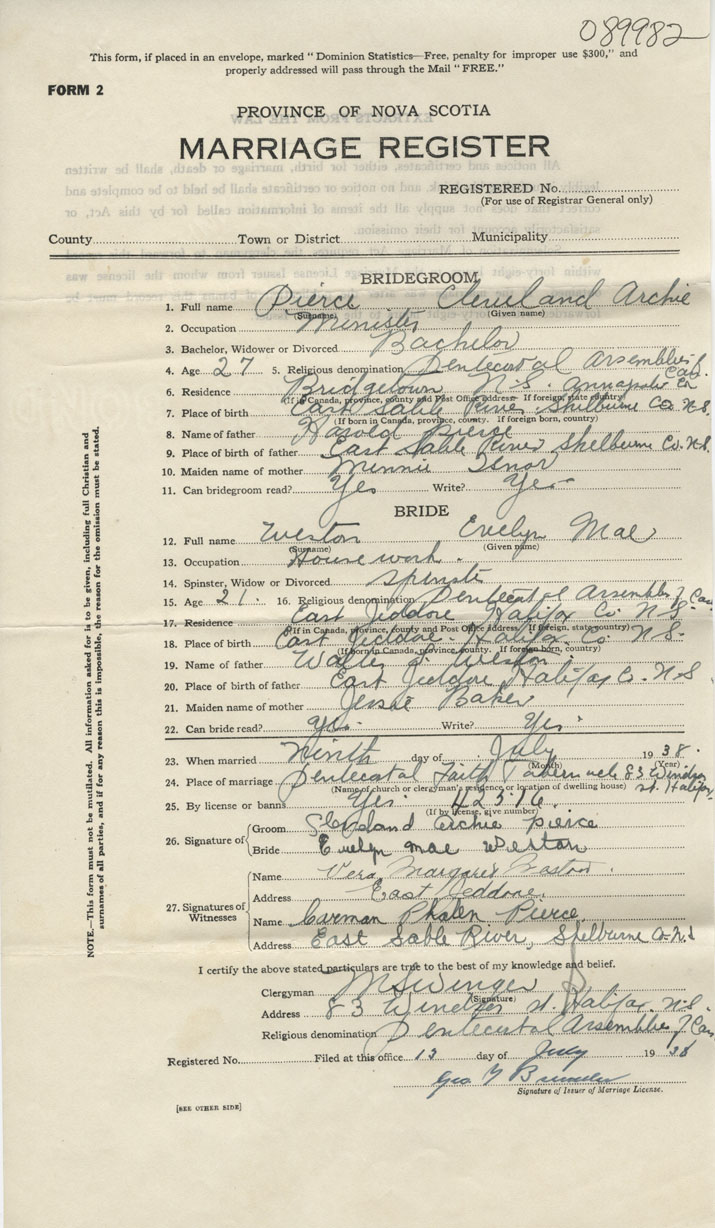 089982
This form, if placed in an envelope, marked "Dominion Statistics—Free, penalty for improper use $300," and
properly addressed will pass through the Mail "FREE."
FORM 2
PROVINCE OF NOVA SCOTIA
MARRIAGE REGISTER
REGISTERED No.
(For use of Registrar General only)
County Town or District Municipality
BRIDEGROOM
1. Full name Pierce Cleveland Archie
(Surname) (Given name)
2. Occupation Minister
3. Bachelor, Widower or Divorced Bachelor
4. Age 27 5. Religious denomination Pentecostal Assemblies of Can.
6. Residence Bridgetown N.S. Annapolis Co
(If in Canada, province, county and Post Office address. If foreign, state country)
7. Place of birth East Sable River Shelburne Co. N.S.
(If born in Canada, province, county. If foreign born, country)
8. Name of father Harold Pierce
9. Place of birth of father East Sable River Shelburne Co. N.S.
10. Maiden name of mother Minnie
11. Can bridegroom read? Yes Write? Yes
BRIDE
12. Full name Weston Evelyn Mae
(Surname) (Given name)
13. Occupation Housework.
14. Spinster, Widow or Divorced Spinster
15. Age 21. 16. Religious denomination Pentecostal Assemblies of Can
17. Residence East Jeddore Halifax Co N.S.
(If in Canada, province, county and Post Office address. If foreign, state country)
18. Place of birth East Jeddore Halifax Co N.S.
(If born in Canada, province, county. If foreign born, country)
19. Name of father Walter J. Weston
20. Place of birth of father East Jeddore Halifax Co. N.S
21. Maiden name of mother Jessie Baker
22. Can bride read? Yes. Write? Yes.
23. When married Ninth day of July 1938.
(Month) (Year)
24. Place of marriage Pentecostal Faith Tabernacle 83 Windsor St. Halifax
(Name of church or clergyman's residence or location of dwelling house)
25. By license or banns Yes 42316.
(If by license, give number)
26. Signature of Groom Cleveland Archie Pierce
Bride Evelyn Mae Weston
27. Signatures of Witnesses
Name Vera Margaret Weston.
Address East Jeddore.
Name Carman Phalen Pierce
Address East Sable River, Shelburne Co. N.S
I certify the above stated particulars are true to the best of my knowledge and belief.
Clergyman M Swinger
(Signature)
Address 83 Windsor St. Halifax, N.S.
Religious denomination Pentecostal Assemblies of Can
Registered No. Filed at this office 12 day of July 1938
Geo
Signature of Issuer of Marriage License.
[SEE OTHER SIDE]
NOTE.—This form must not be mutilated. All information asked for is to be given, including full Christian and
surnames of all parties, and if for any reason this is impossible, the reason for the omission must be stated.